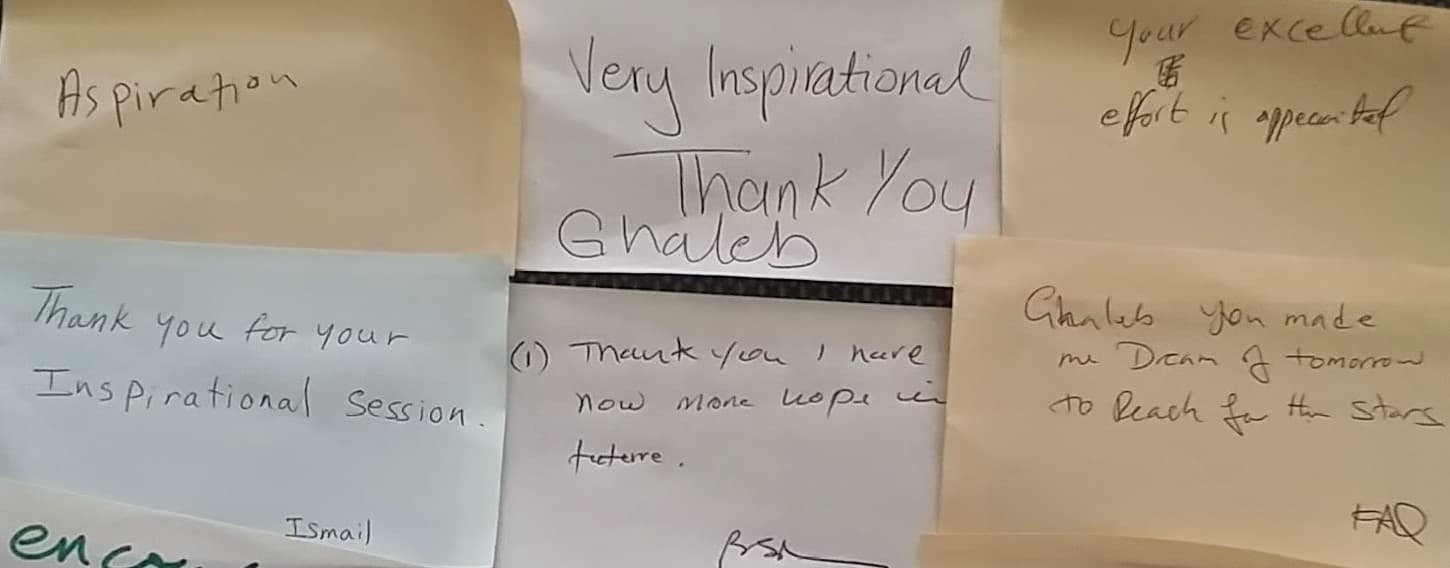 Aspiration
Very Inspirational
Thank You
Ghaleb
your excellent
effort is
Thank you for your
Inspirational Session.
Ismail
(1) Thank you I have
now more hope in
future.
Ghaleb you made
me Dream of tomorrow
to Reach for the stars
FAQ